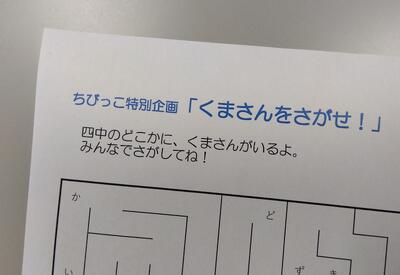 ちびっこ特別企画「くまさんをさがせ！」
四中のどこかに、くまさんがいるよ。
みんなでさがしてね！
か
ど
ず
き
い